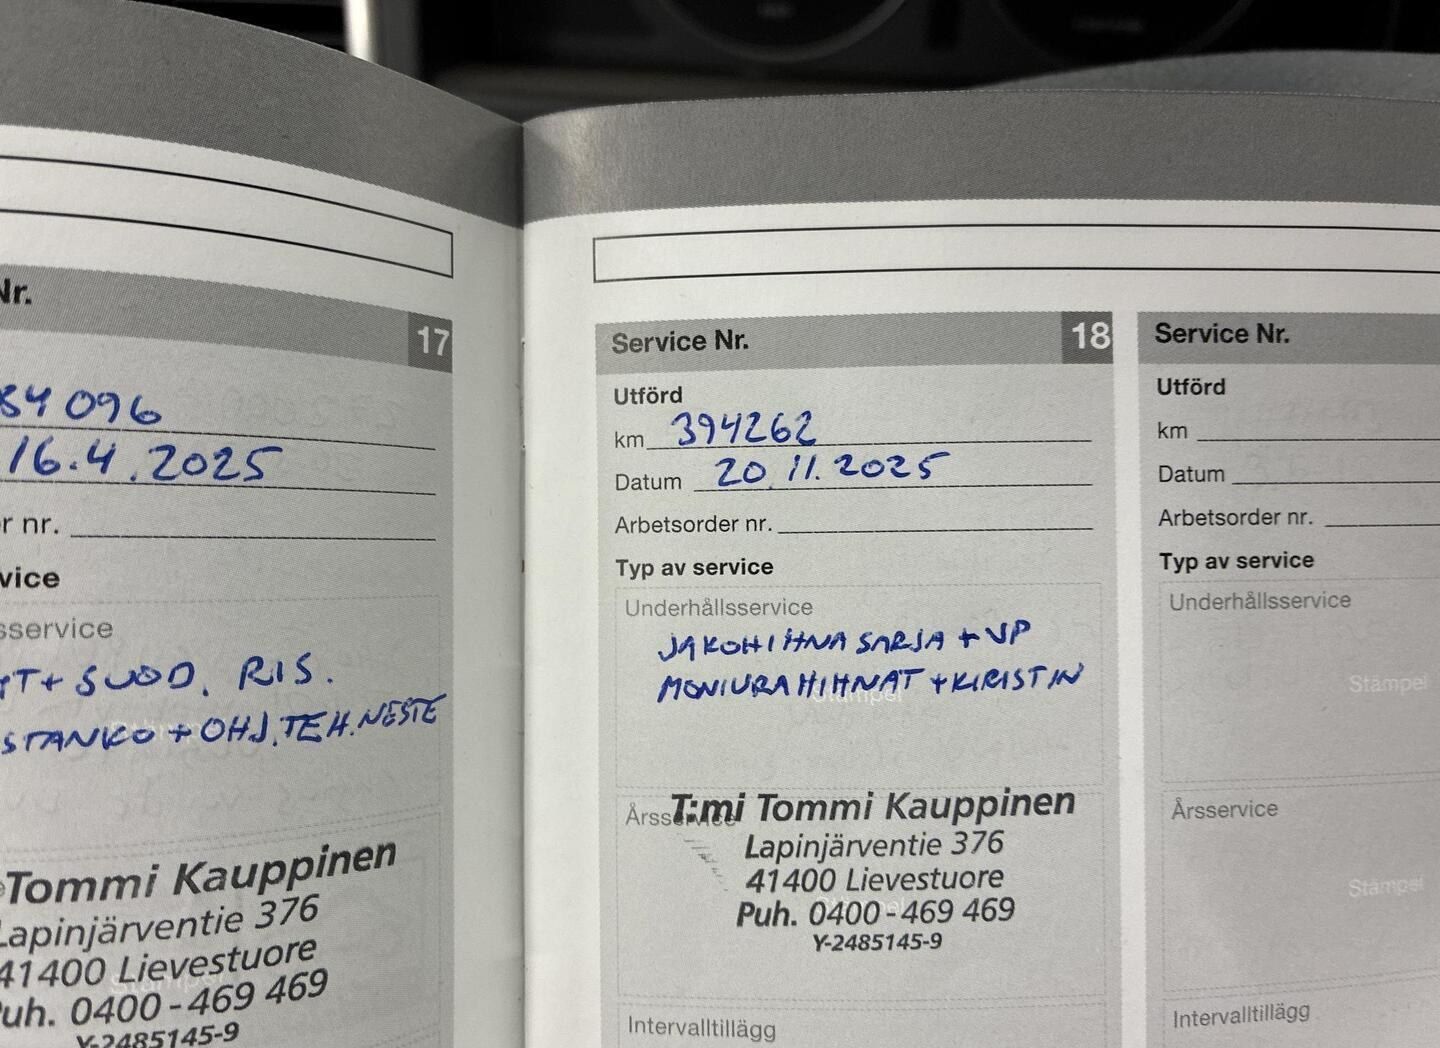 Nr.
17
84 096
16.4.2025
r nr.
vice
sservice
T+ SUOD. RIS.
STANKO + OHJ. TEH. NESTE
Tommi Kauppinen
Lapinjärventie 376
41400 Lievestuore
Puh. 0400-469 469
Y-2485145-9
Service Nr.
18
Utförd
km 394262
Datum 20.11.2025
Arbetsorder nr.
Typ av service
Underhållsservice
JAKOHIHNA SARJA + VP
MONIURAHIHNAT + KIRISTIN
Stämpel
Årsservice
T:mi Tommi Kauppinen
Lapinjärventie 376
41400 Lievestuore
Puh. 0400-469 469
Y-2485145-9
Intervalltillägg
Service Nr.
Utförd
km
Datum
Arbetsorder nr.
Typ av service
Underhållsservice
Stämpel
Årsservice
Stämpel
Intervalltillägg